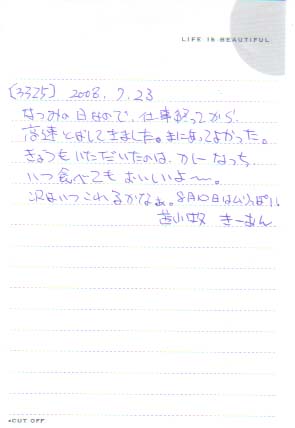 LIFE IS BEAUTIFUL
[3325] 2008.7.23
なつみの日なので、仕事終ってから
高速とばしてきました。まにあってよかった。
きょうもいただいたのは、カレーなっち
いつ食べてもおいしいよ〜。
次はいつこれるかなぁ。8月10日はムリっぽい。
苫小牧 きーあん
CUT OFF